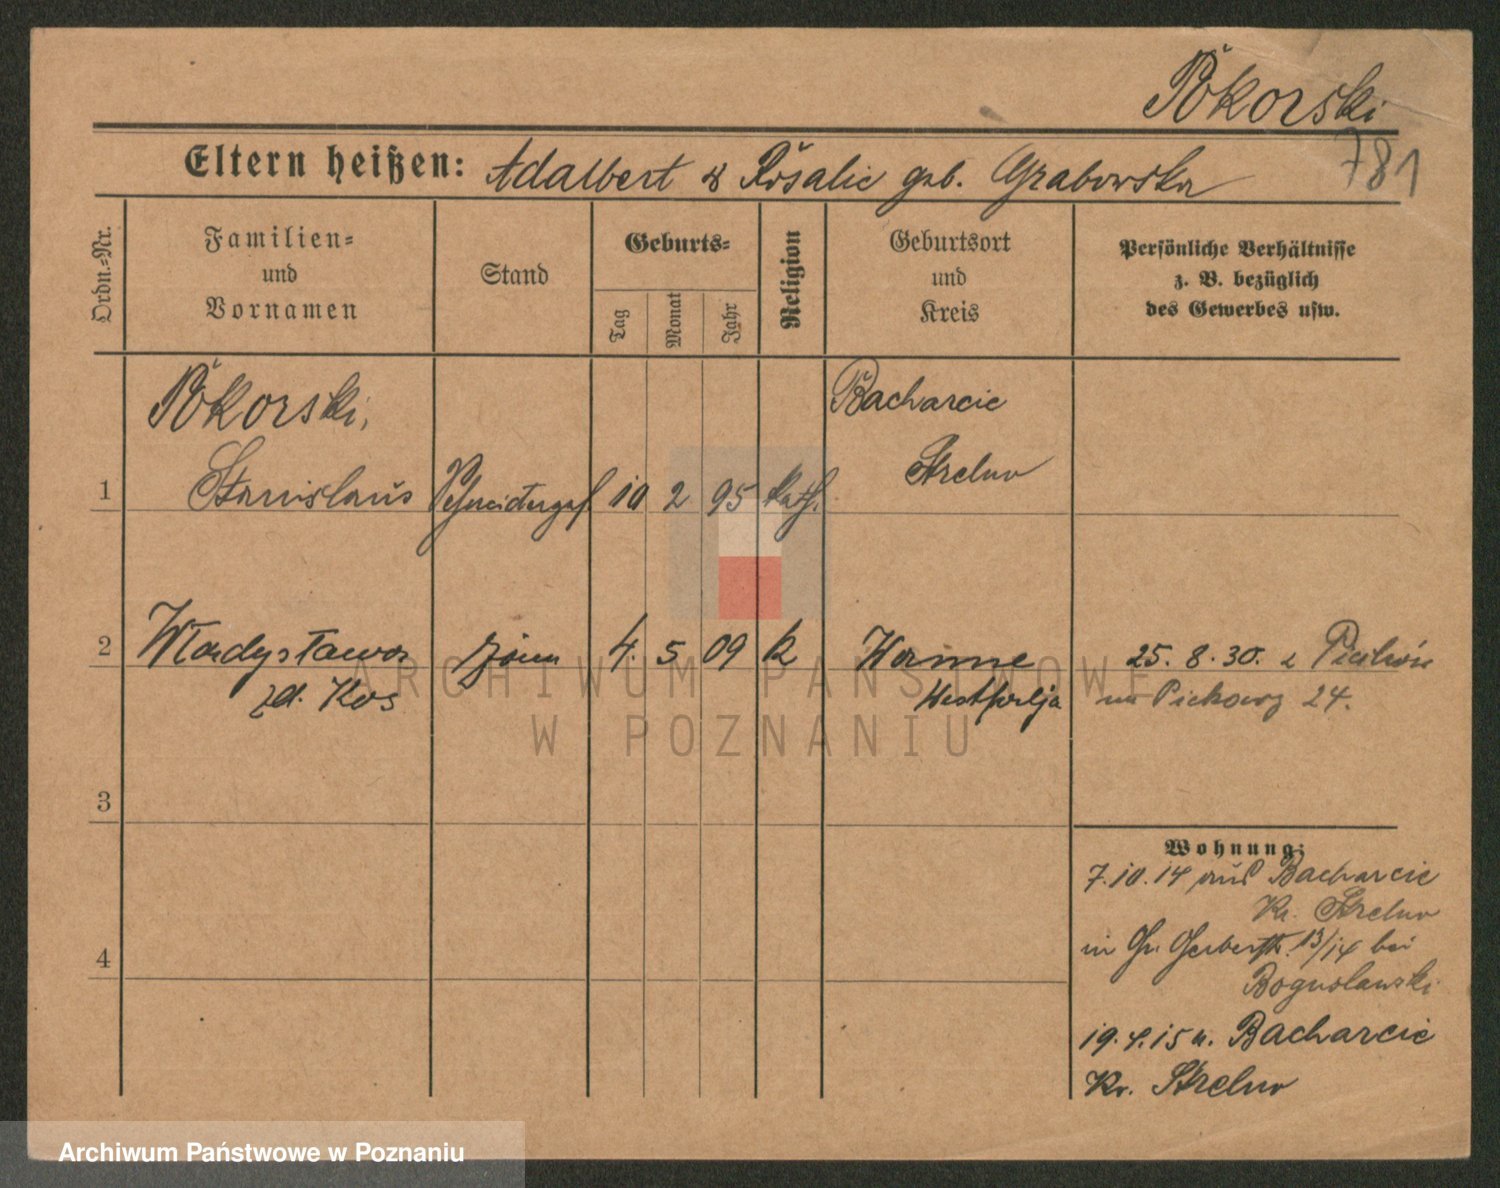 Pokorski
781
Eltern heißen: Adalbert & Rosalie geb. Grabowska
Ordn.=Nr.
Familien=
und
Vornamen
Stand
Geburts=
Tag
Monat
Jahr
Religion
Geburtsort
und
Kreis
Persönliche Verhältnisse
z. B. bezüglich
des Gewerbes usw.
Pokorski,
Bacharcie
Strelno
1 Stanislaus Schneiderges 10 2 95 kath.
2 Władysława żona 4. 5 09 k Wanne 25. 8. 30. z
zd. Kos Westfalja na Piekary 24.
3
4
Wohnung:
7.10.14 aus Bacharcie
Kr. Strelno
in Gr. Gerberstr. 13/14 bei
Boguslawski
19.4.15 n. Bacharcie
Kr. Strelno
ARCHIWUM PAŃSTWOWE
W POZNANIU
Archiwum Państwowe w Poznaniu